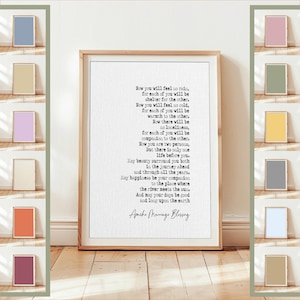 Now you will feel no rain,
for each of you will be
shelter for the other.
Now you will feel no cold,
for each of you will be
warmth to the other.
Now there will be
no loneliness,
for each of you will be
companion to the other.
Now you are two persons,
But there is only one
life before you.
May beauty surround you both
in the journey ahead
and through all the years.
May happiness be your companion
to the place where
the river meets the sun.
And may your days be good
and long upon the earth
Apache Marriage Blessing